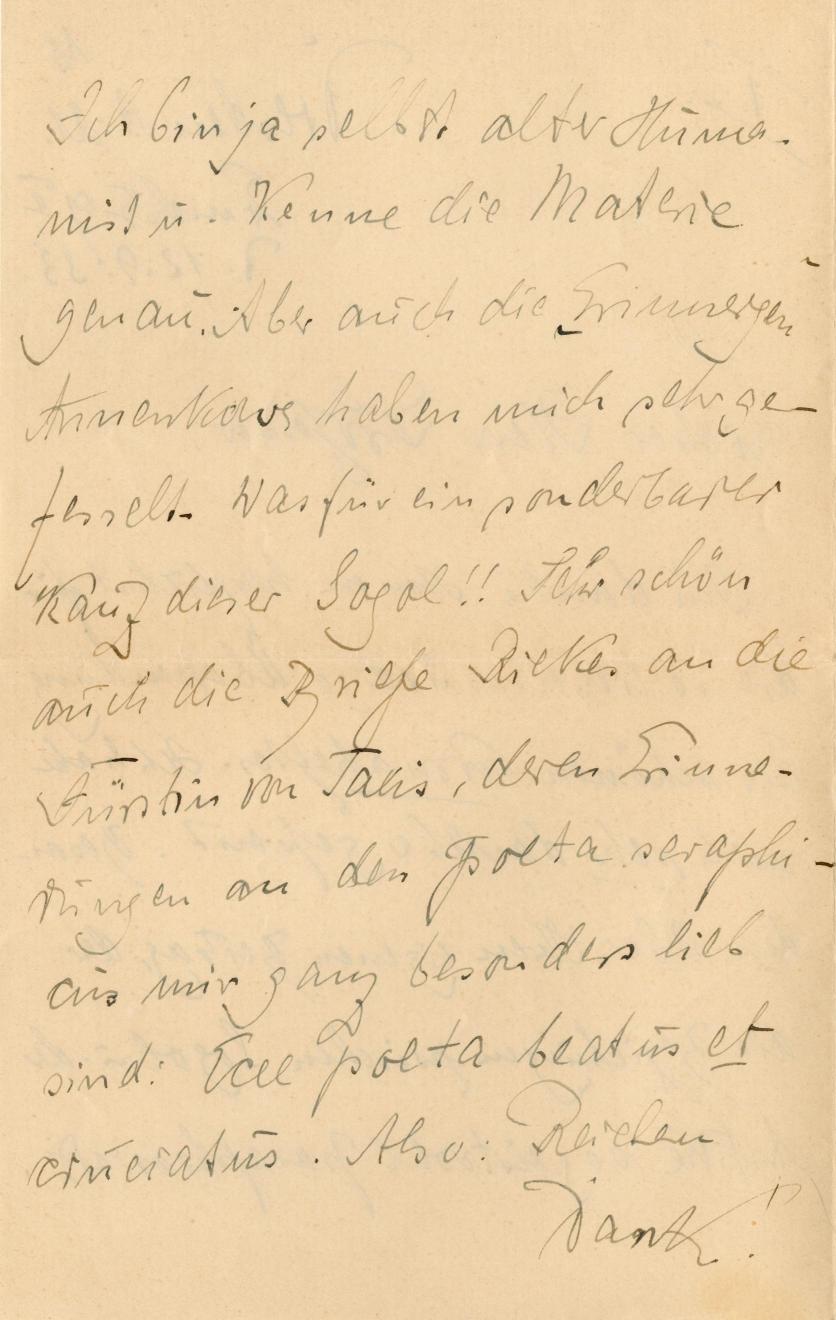 Ich bin ja selbst alter Huma-
nist u. Kenne die Materie
genau. Aber auch die Erinnergen
Annenkows haben mich sehr ge-
fesselt. Was für ein sonderbarer
Kauz dieser Gogol!! Sehr schön
auch die Briefe Rilkes an die
Fürstin von Taxis, deren Erinne-
rungen an den Poeta seraphi-
cus mir ganz besonders lieb
sind: Ecce poeta beatus et
cruciatus. Also: Reichen
Dank!